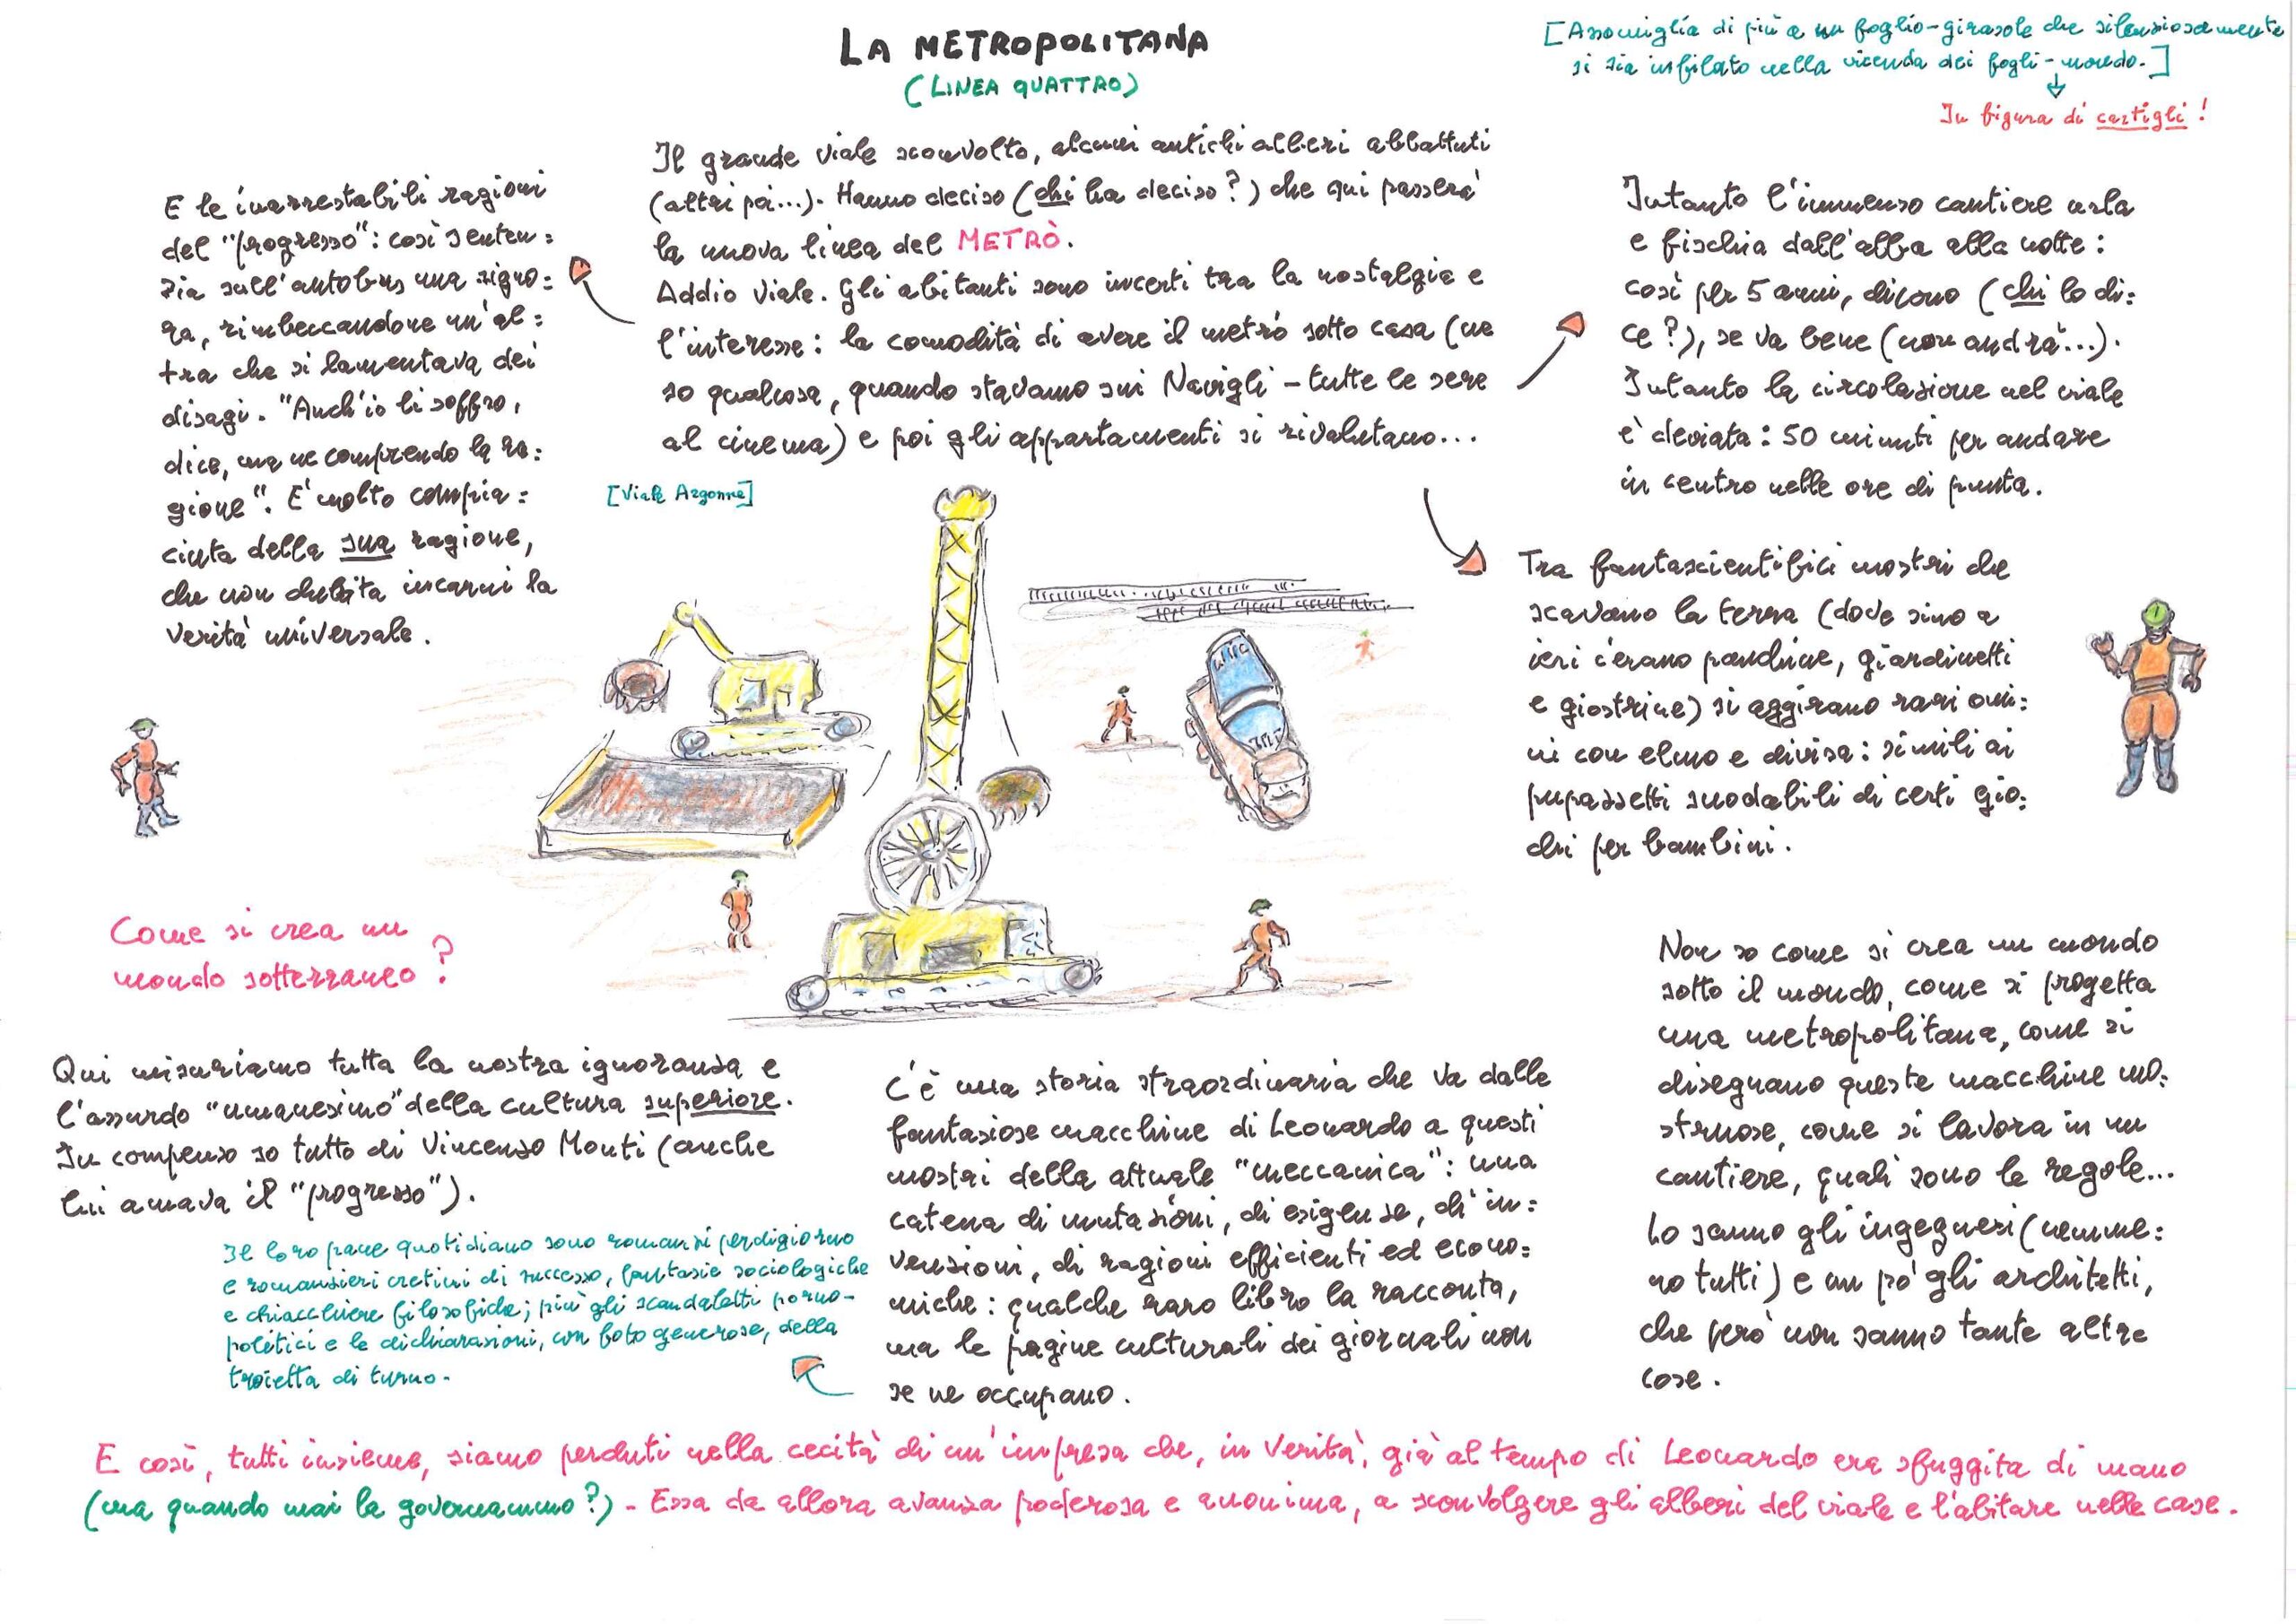 LA METROPOLITANA
(LINEA QUATTRO)
[Assomiglia di più a un foglio-girasole che silenziosamente
si sia infilato nella vicenda dei fogli-mondo.]
In figura di cartigli!
Il grande viale sconvolto, alcuni antichi alberi abbattuti
(altri poi...). Hanno deciso (chi ha deciso?) che qui passerà
la nuova linea del METRÒ.
Addio viale. Gli abitanti sono incerti tra la nostalgia e
l'interesse: la comodità di avere il metró sotto casa (ne
so qualcosa, quando stavamo sui Navigli - tutte le sere
al cinema) e poi gli appartamenti si rivalutano...
E le inarrestabili ragioni
del "progresso": così senten=
zia sull'autobus una signo=
ra, rimbeccandone un'al=
tra che si lamentava dei
disagi. "Anch'io li soffro,
dice, ma ne comprendo la ra=
gione". E' molto compia=
ciuta della sua ragione,
che non dubita incarni la
verità universale.
Intanto l'immenso cantiere urla
e fischia dall'alba alla notte:
così per 5 anni, dicono (chi lo di=
ce?), se va bene (non andrà...).
Intanto la circolazione nel viale
è deviata: 50 minuti per andare
in centro nelle ore di punta.
[Viale Argonne]
Tra fantascientifici mostri che
scavano la terra (dove sino a
ieri c'erano panchine, giardinetti
e giostrine) si aggirano rari omi=
ni con elmo e divisa: simili ai
pupazzetti snodabili di certi gio=
chi per bambini.
WMIC
Come si crea un
mondo sotterraneo?
Non so come si crea un mondo
sotto il mondo, come si progetta
una metropolitana, come si
disegnano queste macchine mo=
struose, come si lavora in un
cantiere, quali sono le regole...
Lo sanno gli ingegneri (nemme=
no tutti) e un po' gli architetti,
che però non sanno tante altre
cose.
Qui misuriamo tutta la nostra ignoranza e
l'assurdo "umanesimo" della cultura superiore.
In compenso so tutto di Vincenzo Monti (anche
lui amava il "progresso").
C'è una storia straordinaria che va dalle
fantasiose macchine di Leonardo a questi
mostri della attuale "meccanica": una
catena di mutazioni, di esigenze, di in=
venzioni, di ragioni efficienti ed econo=
miche: qualche raro libro la racconta,
ma le pagine culturali dei giornali non
se ne occupano.
Il loro pane quotidiano sono romanzi perdigiorno
e romanzieri cretini di successo, fantasie sociologiche
e chiacchiere filosofiche; più gli scandaletti porno-
politici e le dichiarazioni, con foto generose, della
troietta di turno.
E così, tutti insieme, siamo perduti nella cecità di un'impresa che, in verità, già al tempo di Leonardo era sfuggita di mano
(ma quando mai la governammo?) - Essa da allora avanza poderosa e anonima, a sconvolgere gli alberi del viale e l'abitare nelle case.